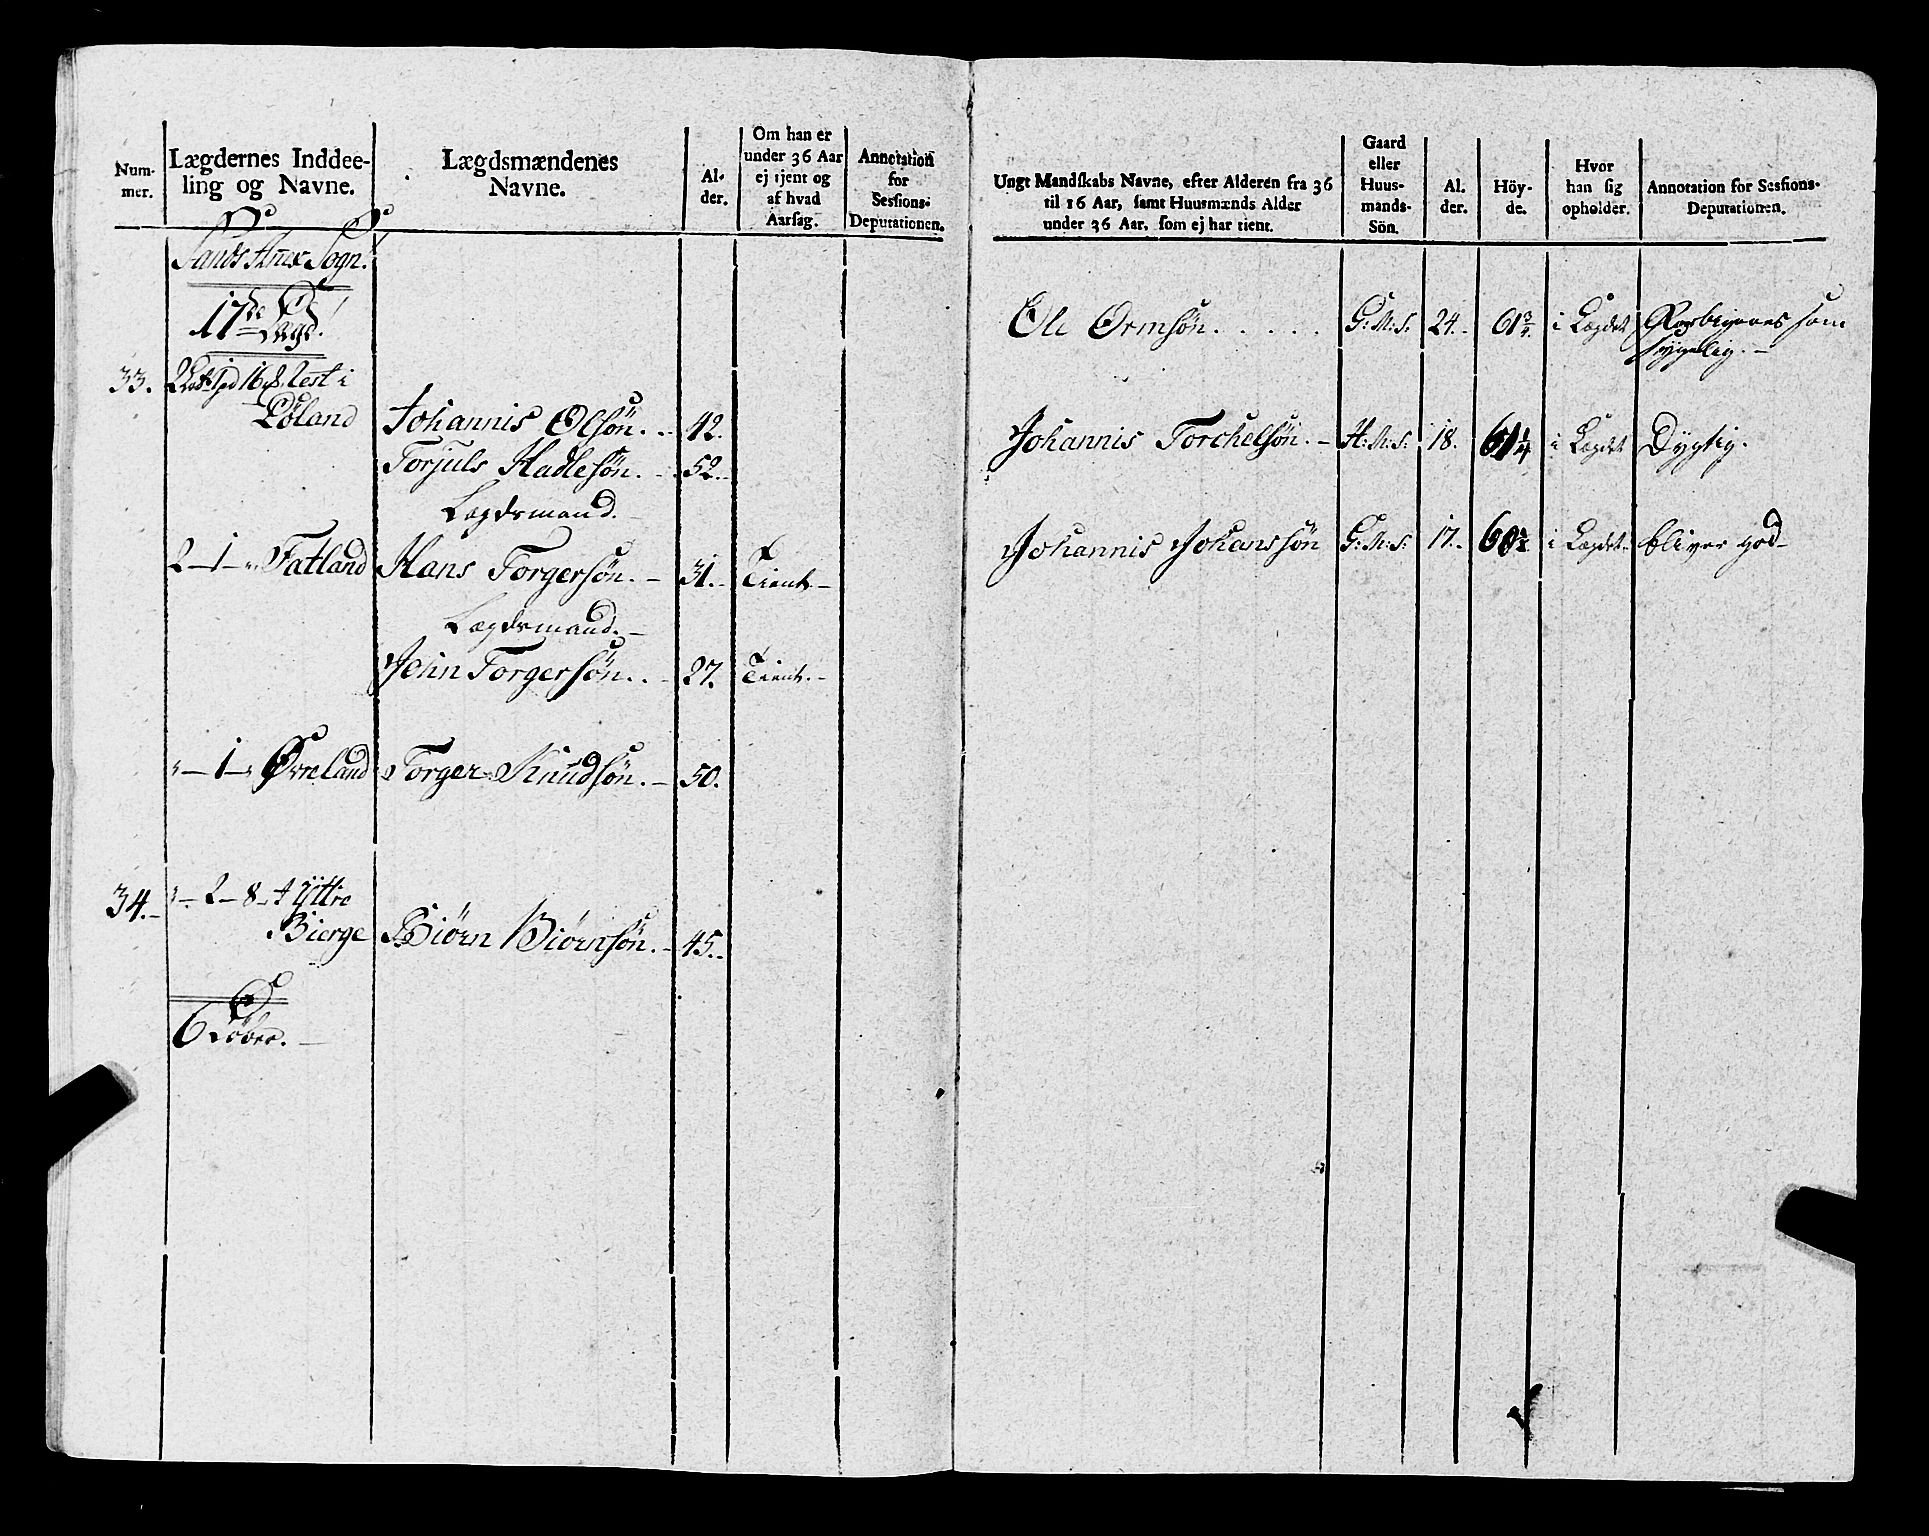 Num-
mer.
Lægdernes Inddee-
ling og Navne.
Lægdsmændenes
Navne.
Al-
der.
Om han er
under 36 Aar
ej tjent og
af hvad
Aarsag.
Annotation
for
Sessions-
Deputationen.
Sands Anex Sogn.
17de Lægd.
33.
1 pd 16 Mk. Test i
Løland
Johannis Olsön. 42.
Torjuls Hadlesön. 52.
Lægdsmand.
2 - 1 - " Fatland Hans Torgersön. 31. Tient
Lægdsmand.
John Torgersön. 27. Tient.
" - 1 - " Øvreland Torger Knudsön. 50.
34. " - 2 - 8 - Yttre
Bierge Biørn Biørnsön. 45.
6 Løber.
Ungt Mandskabs Navne, efter Alderen fra 36
til 16 Aar, samt Huusmænds Alder
under 36 Aar, som ej har tient.
Gaard
eller
Huus-
mands-
Sön.
Al-
der.
Höy-
de.
Hvor
han sig
opholder.
Annotation for Sessions-
Deputationen.
Ole Ormsön. G: M: S: 24. 61 3/4 i Lægdet Forbigaaes som
sygelig.
Johannis Torchelsön. H: M: S: 18. 61 1/4 i Lægdet Dygtig.
Johannis Johanssön G: M: S: 17. 60 i Lægdet bliver god